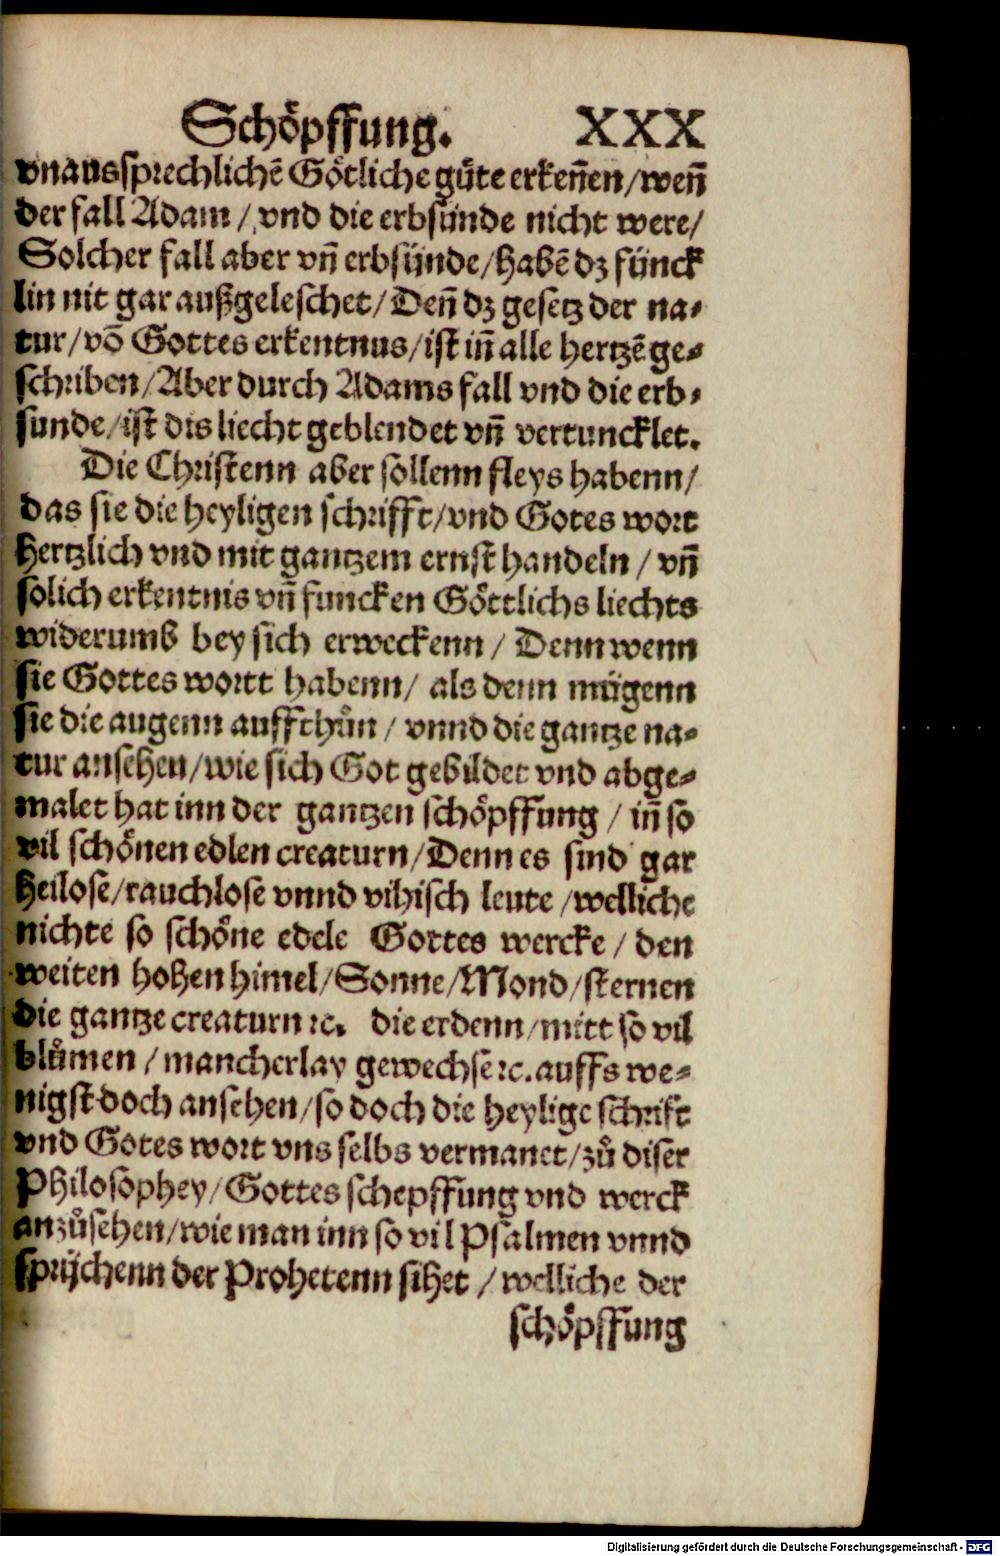 Schöpffung. XXX
vnaussprechlichē Götliche güte erkeñen/weñ
der fall Adam/ vnd die erbsünde nicht were/
Solcher fall aber vñ erbsünde/habē dz fünck
lin nit gar außgeleschet/Deñ dz gesetz der na⸗
tur/vō Gottes erkentnus/ist iñ alle hertzē ge⸗
schriben/Aber durch Adams fall vnd die erb⸗
sunde/ist dis liecht geblendet vñ vertuncklet.
Die Christenn aber sollenn fleys habenn/
das sie die heyligen schrifft/vnd Gotes wort
hertzlich vnd mit gantzem ernst handeln/ vñ
solich erkentnis vñ funcken Göttlichs liechts
widerumb bey sich erweckenn/ Denn wenn
sie Gottes wortt habenn/ als denn mügenn
sie die augenn auffthůn/ vnnd die gantze na⸗
tur ansehen/wie sich Got gebildet vnd abge⸗
malet hat inn der gantzen schöpffung/ iñ so
vil schönen edlen creaturn/Denn es sind gar
heilose/rauchlose vnnd vihisch leute/welliche
nichte so schöne edele Gottes wercke/ den
weiten hohen himel/Sonne/Mond/sternen
die gantze creaturn ꝛc. die erdenn/mitt so vil
blůmen/mancherlay gewechse ꝛc. auffs we⸗
nigst doch ansehen/so doch die heylige schrift
vnd Gotes wort vns selbs vermanet/zů diser
Philosophey/Gottes schepffung vnd werck
anzůsehen/wie man inn so vil Psalmen vnnd
sprüchenn der Prohetenn sihet/welliche der
schöpffung
Digitalisierung gefördert durch die Deutsche Forschungsgemeinschaft - DFG